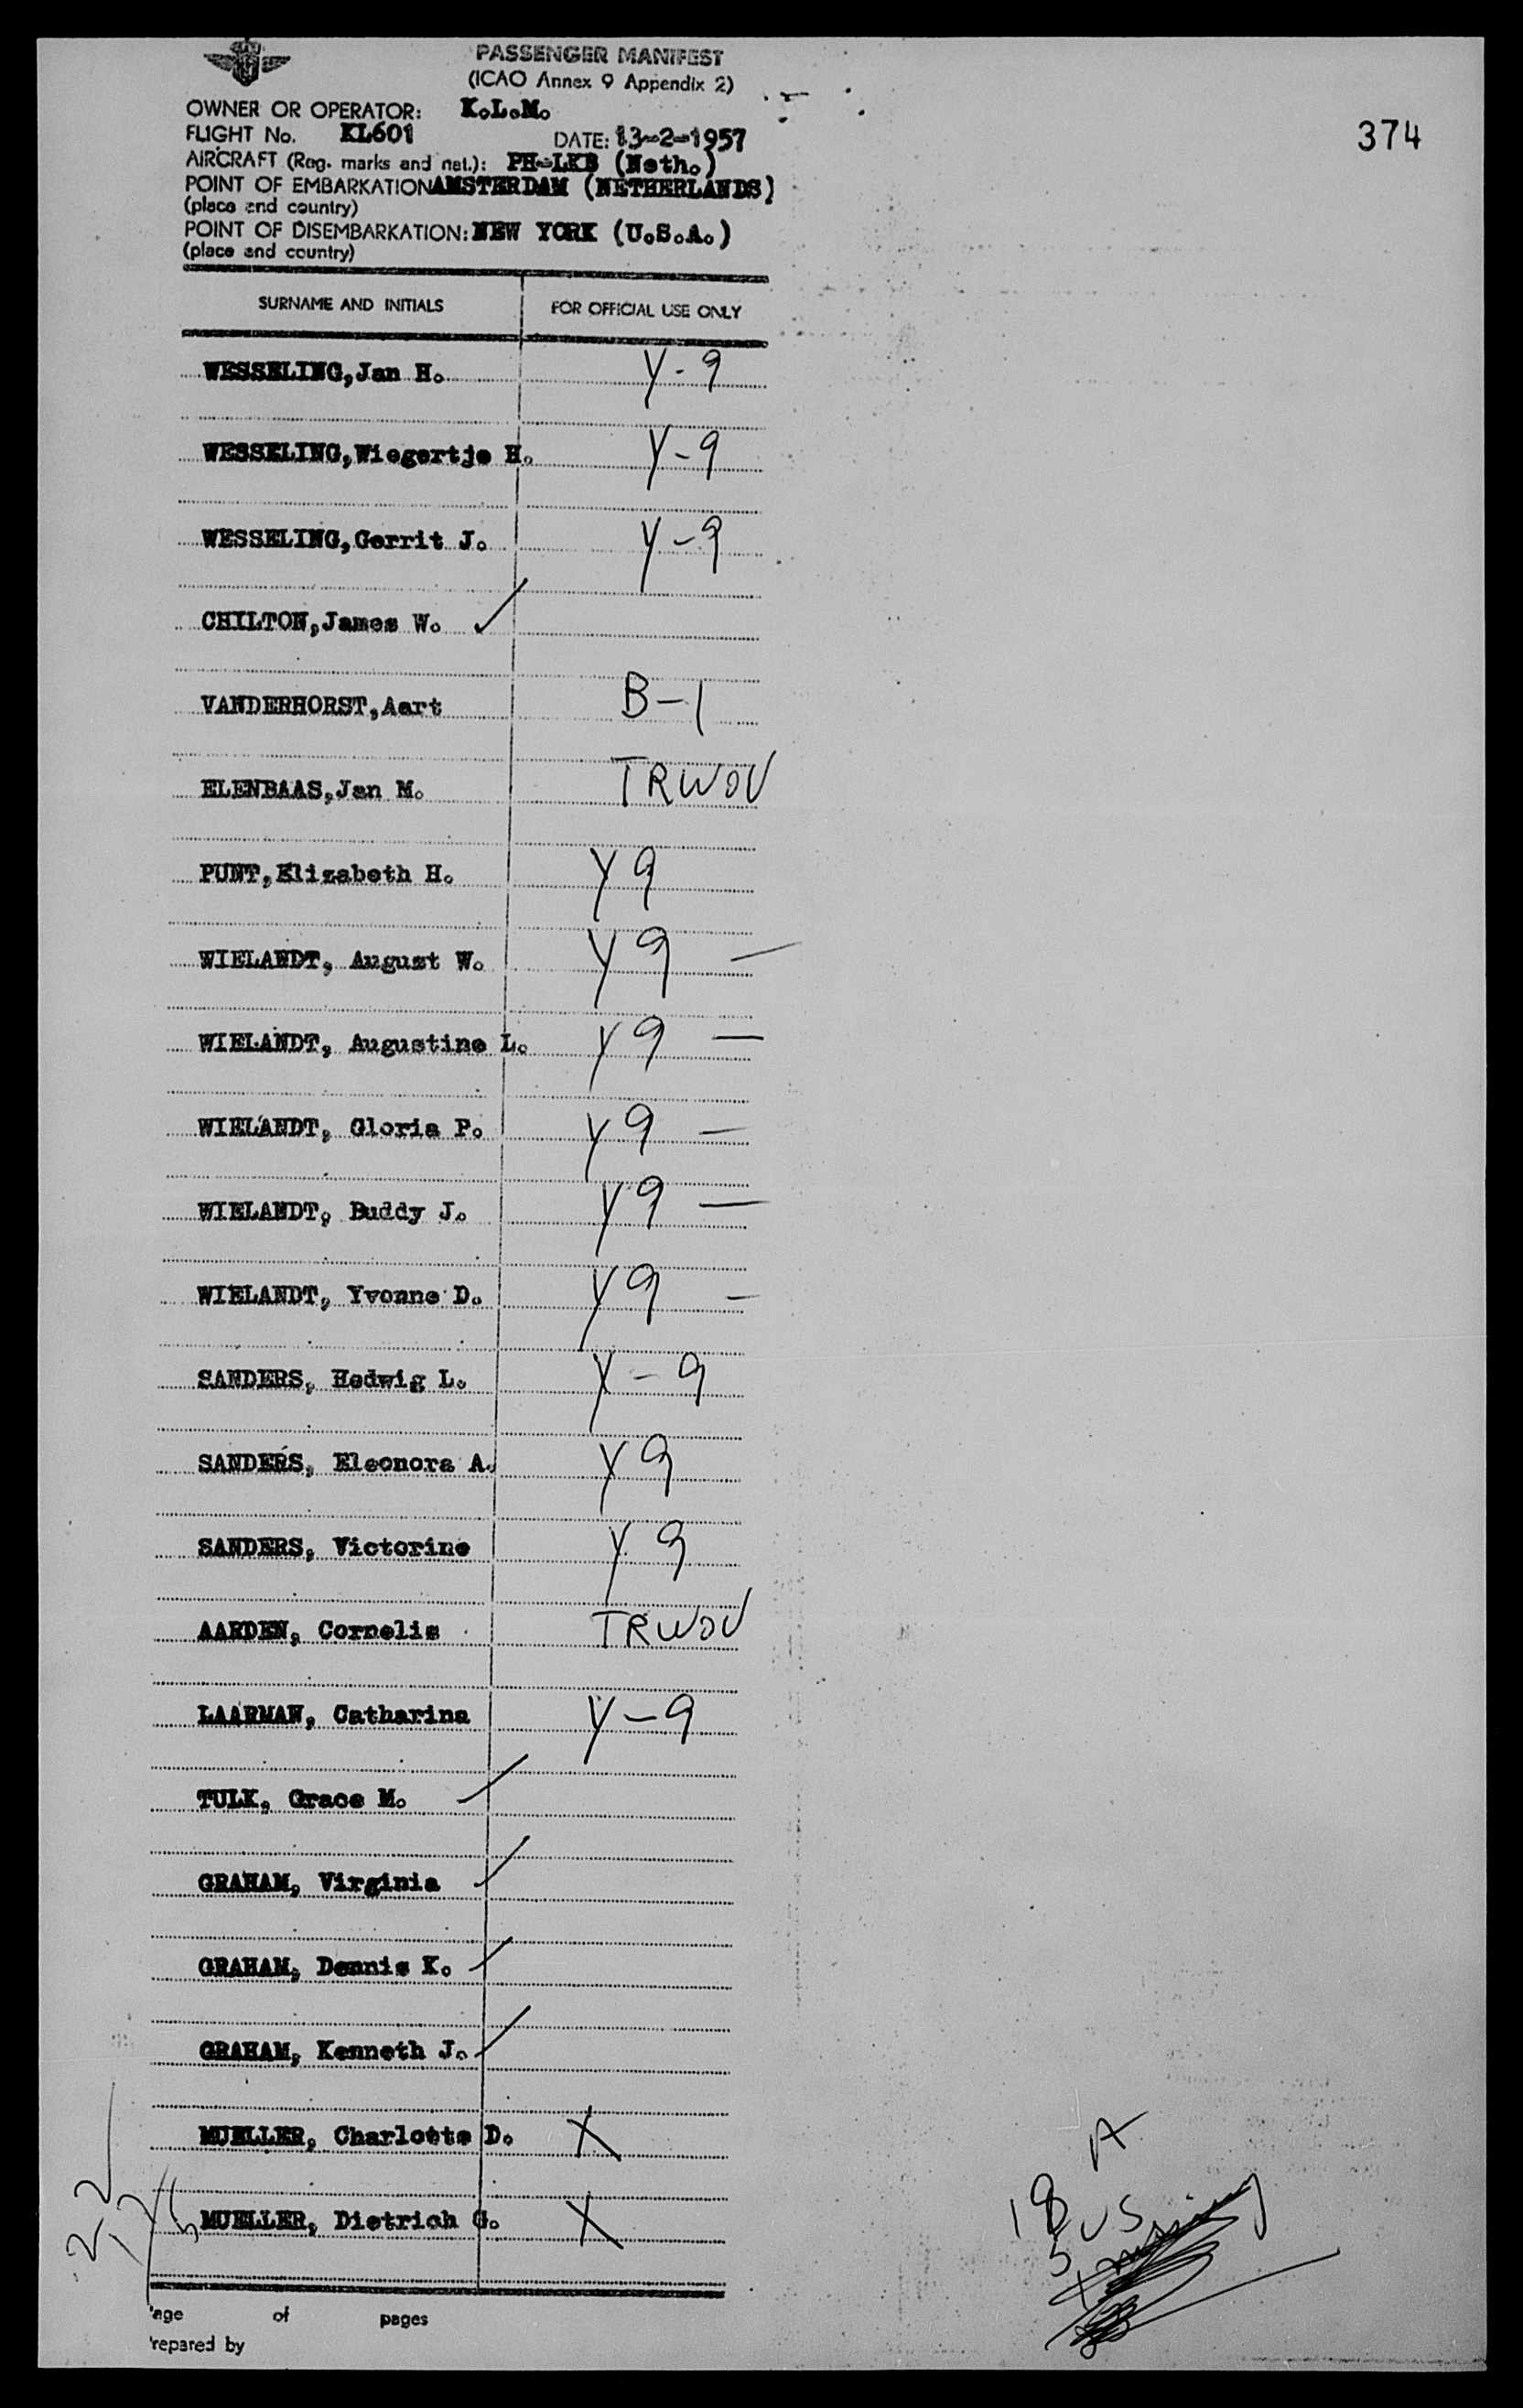 PASSENGER MANIFEST
(ICAO Annex 9 Appendix 2)
OWNER OR OPERATOR: K.L.M.
374
FLIGHT No. KL601 DATE: 13-2-1957
AIRCRAFT (Reg. marks and nat.): PH-LKB (Neth.)
POINT OF EMBARKATION AMSTERDAM (NETHERLANDS)
(place and country)
POINT OF DISEMBARKATION: NEW YORK (U.S.A.)
(place and country)
SURNAME AND INITIALS FOR OFFICIAL USE ONLY
WESSELING,Jan H. Y-9
WESSELING,Wiegertje H. Y-9
WESSELING,Gerrit J. Y-9
CHILTON,James W. ✓
VANDERHORST,Aart B-1
ELENBAAS,Jan M. TRWOV
PUNT,Elizabeth H. Y9
WIELANDT, August W. Y9 —
WIELANDT, Augustine L. Y9 —
WIELANDT, Gloria P. Y9 —
WIELANDT, Buddy J. Y9 —
WIELANDT, Yvonne D. Y9 —
SANDERS, Hedwig L. Y-9
SANDERS, Eleonora A. Y9
SANDERS, Victorine Y9
AARDEN, Cornelis TRWOV
LAARMAN, Catharina Y-9
TULK, Grace M. ✓
GRAHAM, Virginia ✓
GRAHAM, Dennis K. ✓
GRAHAM, Kenneth J. ✓
MUELLER, Charlotte D. X
MUELLER, Dietrich G. X
A
18
5 US
age of pages
repared by